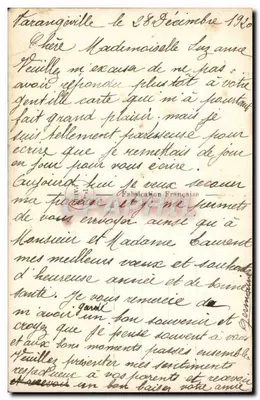 Varangéville le 28 Décembre 1920
Chère Mademoiselle Suzanne
Veuillez m'excuser de ne pas
avoir répondu plustôt à votre
gentille carte qui m'a pourtant
fait grand plaisir, mais je
suis tellement paresseuse pour
écrire que je remettais de jour
en jour pour vous écrire.
Aujourd'hui je veux secouer
Fabrication Française
ma et me permets
de vous envoyer ainsi qu'à
Monsieur et Madame Laurent
mes meilleurs vœux et souhaits
d'heureuse année et de bonne
santé. Je vous remercie de
m'avoir gardé un bon souvenir et
croyez que je pense souvent à vous
et aux bons moments passés ensemble
Veuillez présenter mes sentiments
respectueux à vos parents et recevoir
un bon baiser votre amie
Germaine